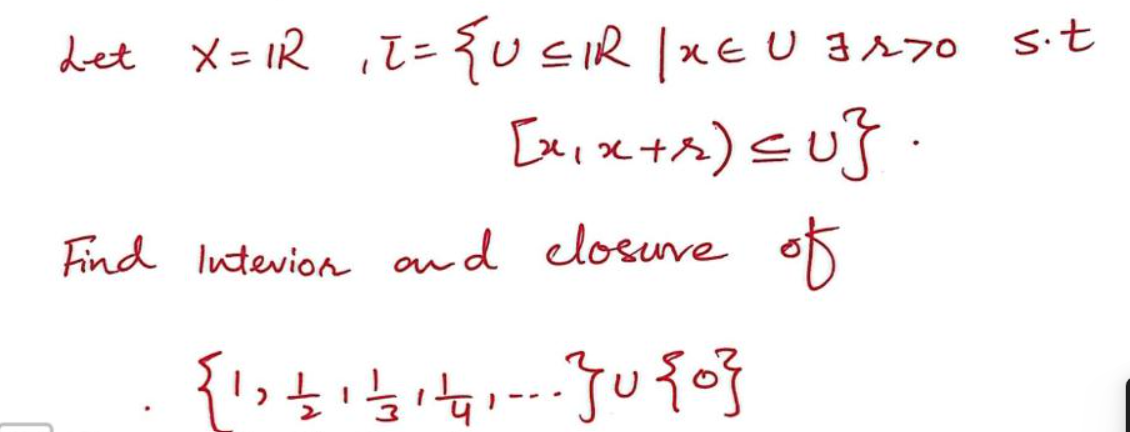 Let X = ℝ , τ = {U ⊆ ℝ | x ∈ U ∃ r>0 s.t
[x, x+r) ⊆ U} .
Find Interior and closure of
. {1, 1/2, 1/3, 1/4, ---} ∪ {0}